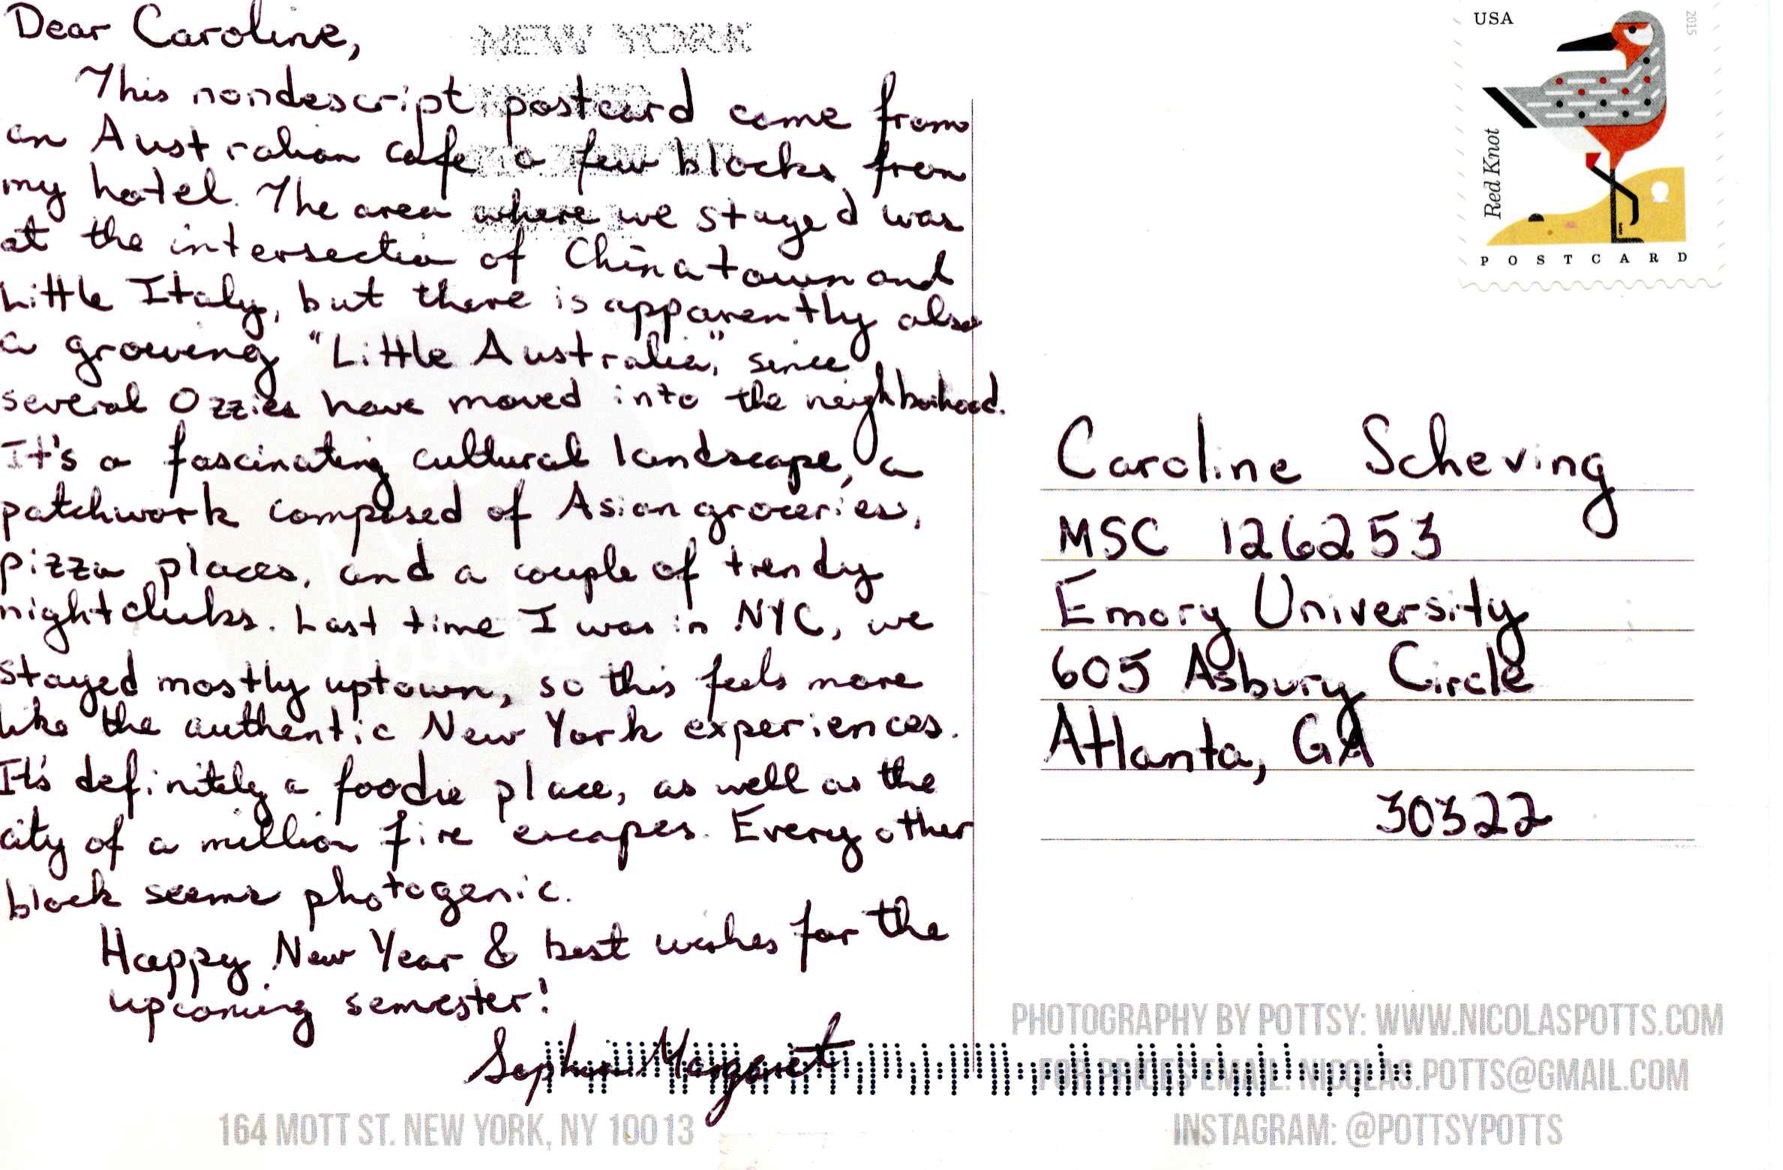 Dear Caroline,
This nondescript postcard came from
an Australian cafe a few blocks from
my hotel. The area where we stayed was
at the intersection of Chinatown and
Little Italy, but there is apparently also
a growing "Little Australia", since
several Ozzies have moved into the neighborhood.
It's a fascinating cultural landscape, a
patchwork composed of Asian groceries,
pizza places, and a couple of trendy
nightclubs. Last time I was in NYC, we
stayed mostly uptown, so this feels more
like the authentic New York experiences.
It's definitely a foodie place, as well as the
city of a million fire escapes. Every other
block seems photogenic.
Happy New Year & best wishes for the
upcoming semester!
Margaret
164 MOTT ST. NEW YORK, NY 10013
NEW YORK
USA
2015
Red Knot
POSTCARD
Caroline Scheving
MSC 126253
Emory University
605 Asbury Circle
Atlanta, GA
30322
PHOTOGRAPHY BY POTTSY: WWW.NICOLASPOTTS.COM
FOR PRICES EMAIL: NICOLAS.POTTS@GMAIL.COM
INSTAGRAM: @POTTSYPOTTS